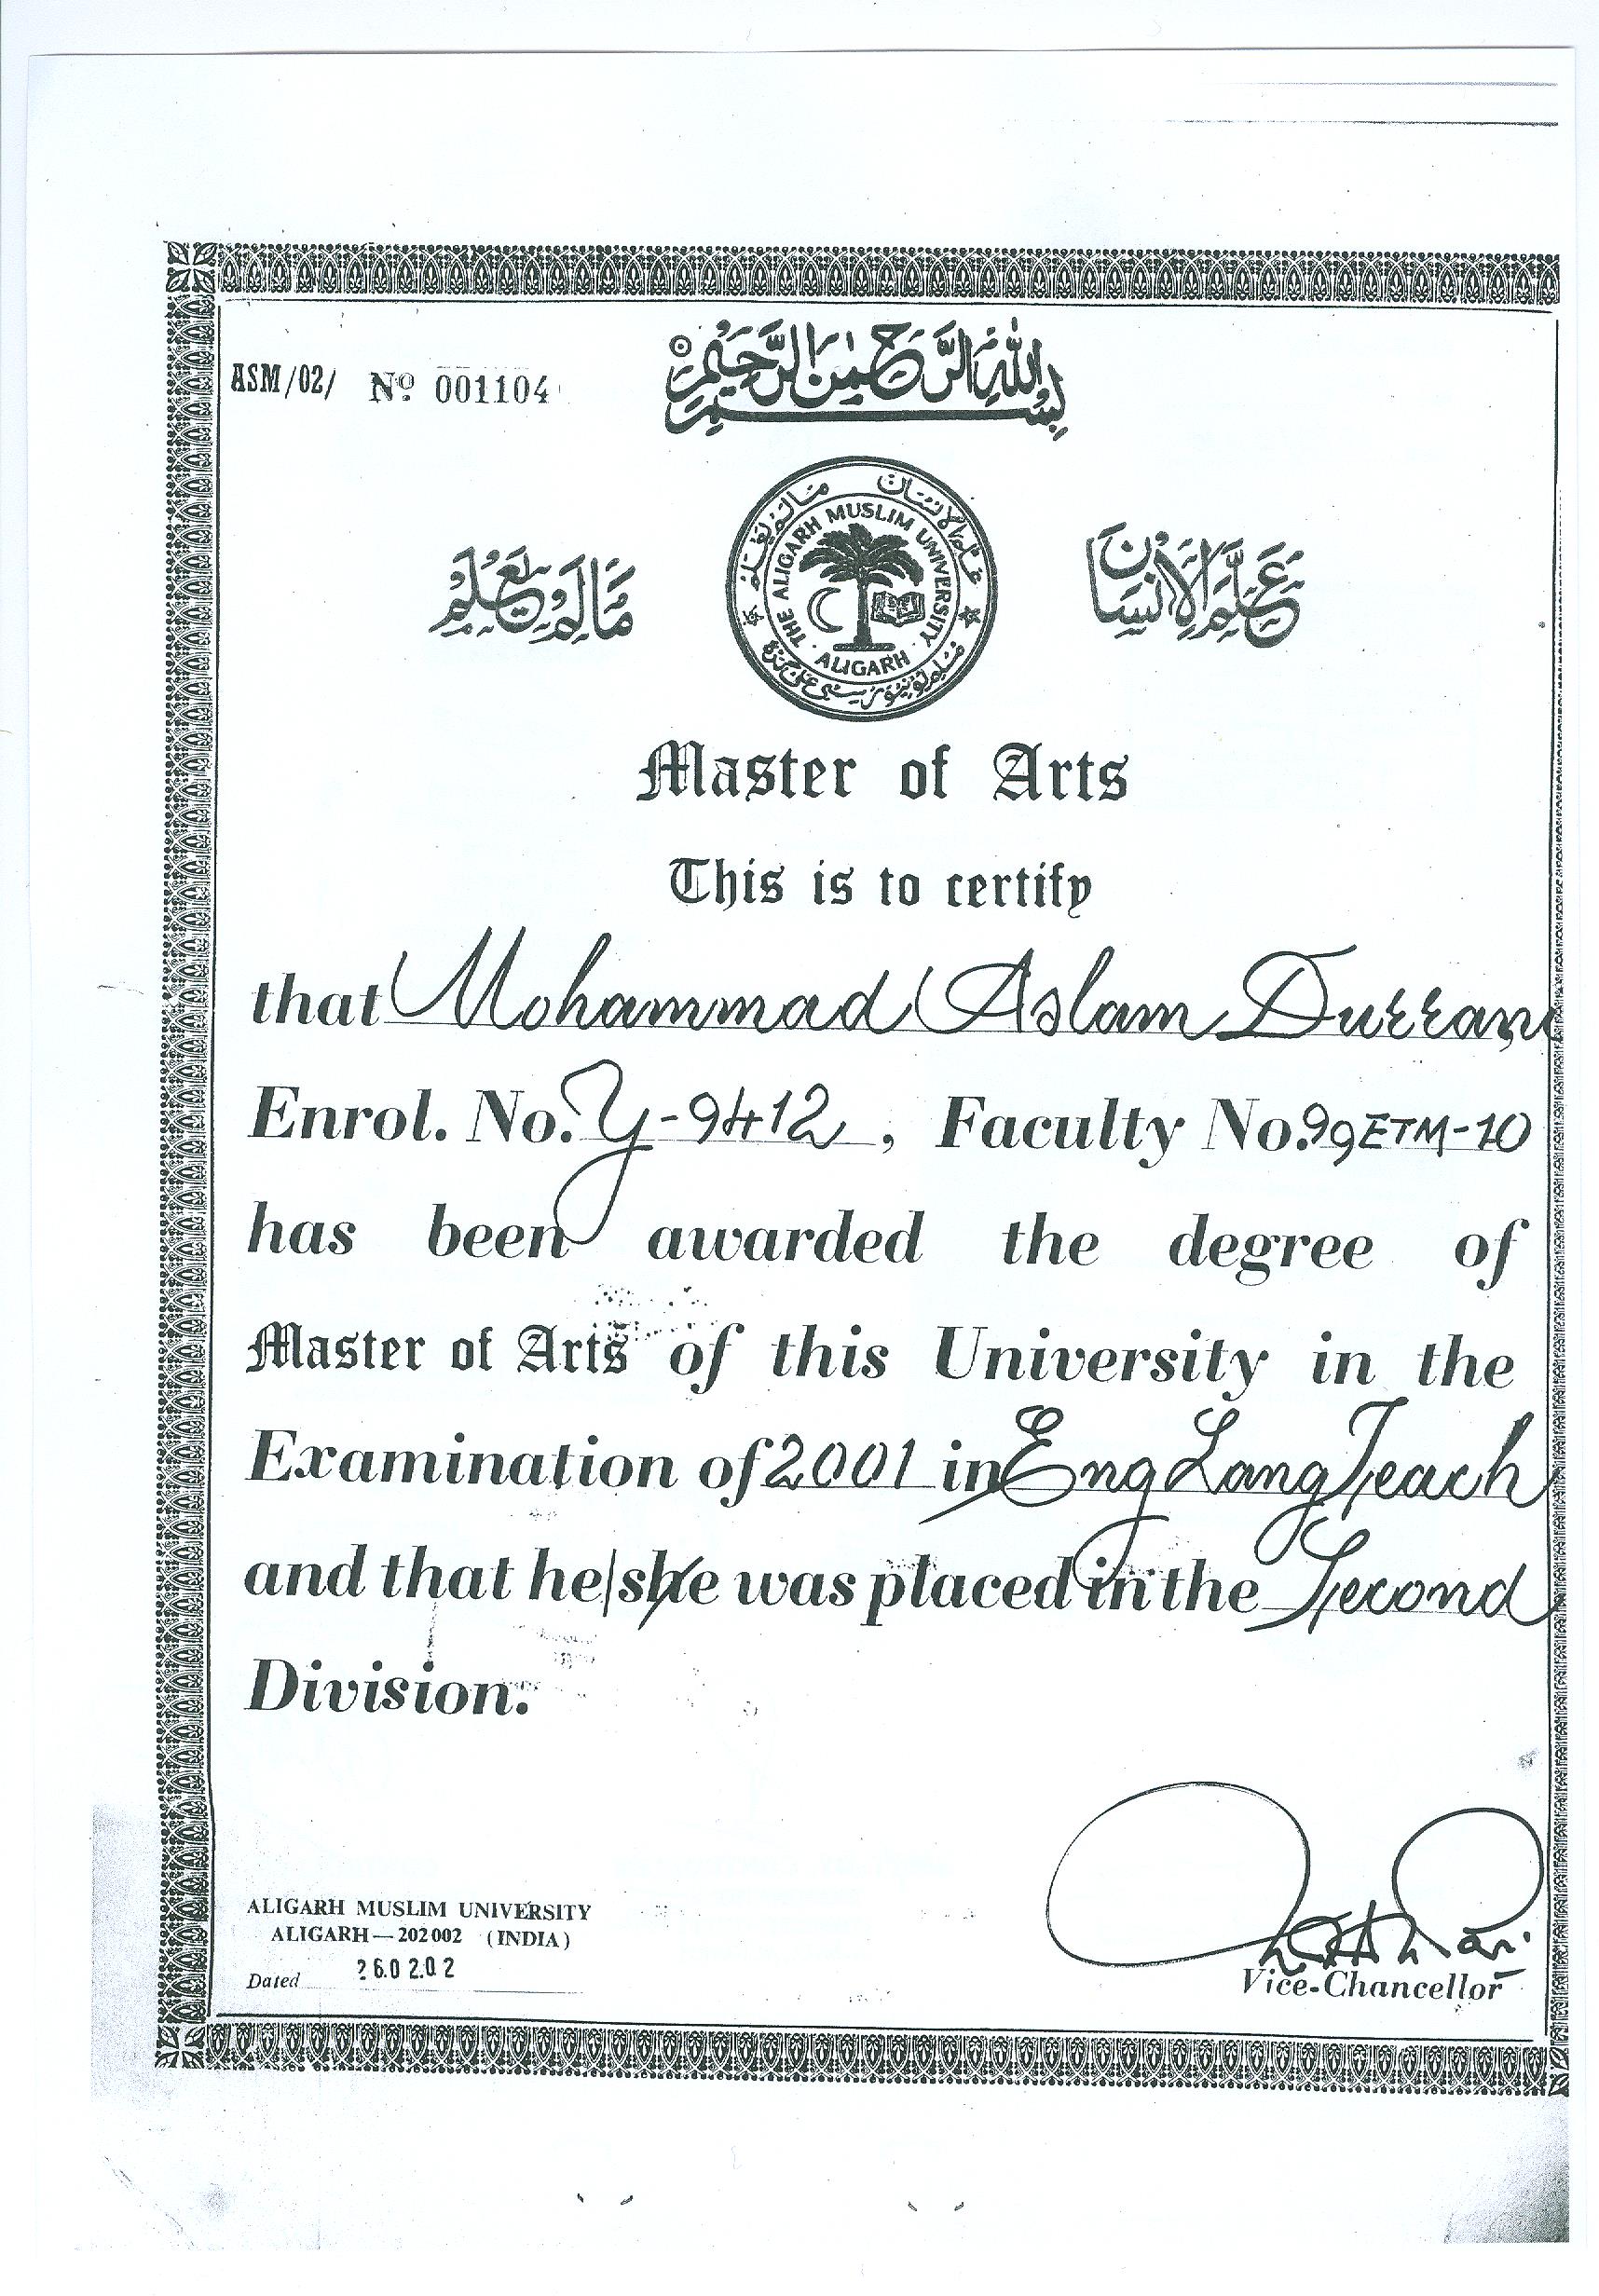 ASM/02/ Nº 001104
بِسْمِ اللهِ الرَّحْمٰنِ الرَّحِيْمِ
عَلَّمَ الْاِنْسَانَ
مَالَمْ يَعْلَمْ
علم الانسان مالم يعلم
THE ALIGARH MUSLIM UNIVERSITY
ALIGARH
مسلم یونیورسیٹی علی گڑھ
Master of Arts
This is to certify
that Mohammad Aslam Durrani
Enrol. No. Y-9412, Faculty No. 99ETM-10
has been awarded the degree of
Master of Arts of this University in the
Examination of 2001 in Eng Lang Teach
and that he/she was placed in the Second
Division.
ALIGARH MUSLIM UNIVERSITY
ALIGARH—202 002 (INDIA)
Dated 260202
Vice-Chancellor